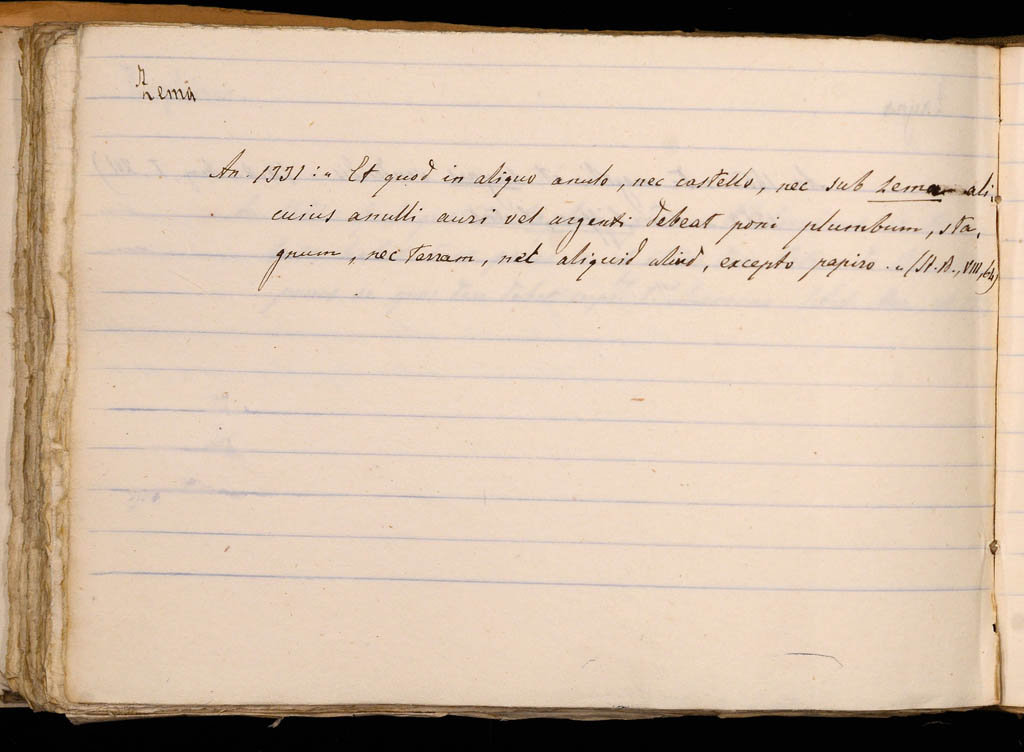 Zema
An. 1331: „ Et quod in aliquo anulo, nec castello, nec sub zema ali-
cuius anulli auri vel argenti debeat poni plumbum, sta-
gnum, nec terram, nec aliquid aliud, excepto papiro. „ (St. B., VIII, 64)